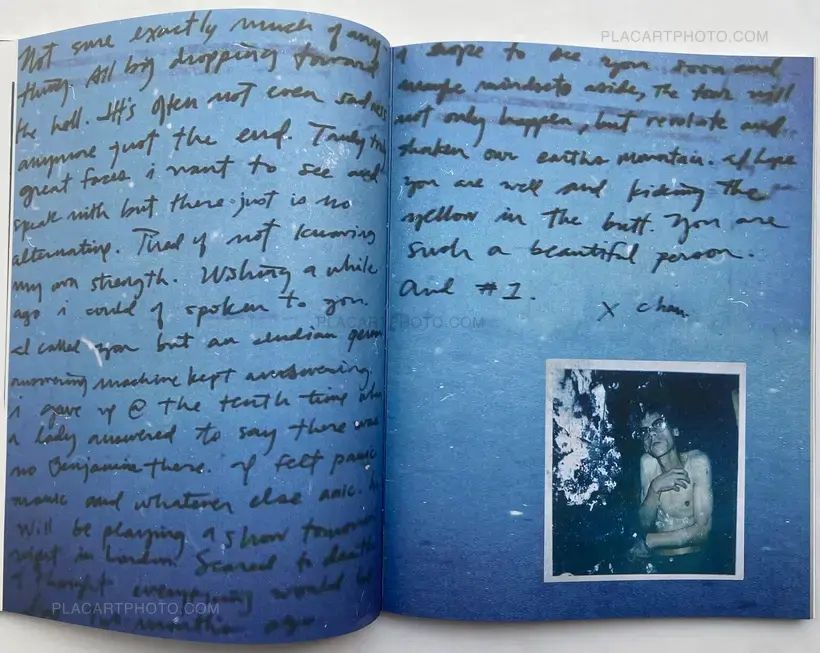 PLACARTPHOTO.COM
Not sure exactly much of any
thing. All big dropping toward
the hell. It's often not even sadness
anymore just the end. Truly the
great faces i want to see and
speak with but there just is no
alternating. Tired of not knowing
my own strength. Wishing a while
ago i could of spoken to you.
I called you but an Indian
answering machine kept answering.
i gave up @ the tenth time when
a lady answered to say there was
no Benjamin there. I felt panic
manic and whatever else anic.
will be playing a show tomorrow
night in London. Scared to death
I thought everything would be
months ago
I hope to see you soon and
maybe mindsets aside, The tour will
not only happen, but revolate and
shaken our earths mountain. I hope
you are well and kicking the
yellow in the butt. You are
such a beautiful person.
and #1.
x chan
PLACARTPHOTO.COM
PLACARTPHOTO.COM
PLACARTPHOTO.COM